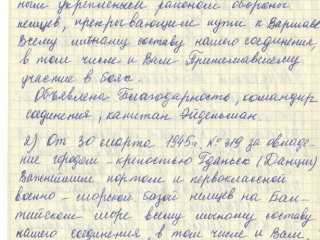 ном укрепленным районом обороны
немцев, прекрывающим пути к Варшаве
Всему личному составу нашего соединения,
в том числе и Вам Принимавшему
участие в боях.
Объявлена Благодарность, командир
соединения, капитан Эйдельман.
2) От 30 марта 1945г. № 319 за овладе-
ние городом-крепостью Гданьск (Данциг)
Важнейшим портом и первоклассной
военно-морской базой немцев на Бал-
тийском море всему личному составу
нашего соединения, в том числе и Вам,